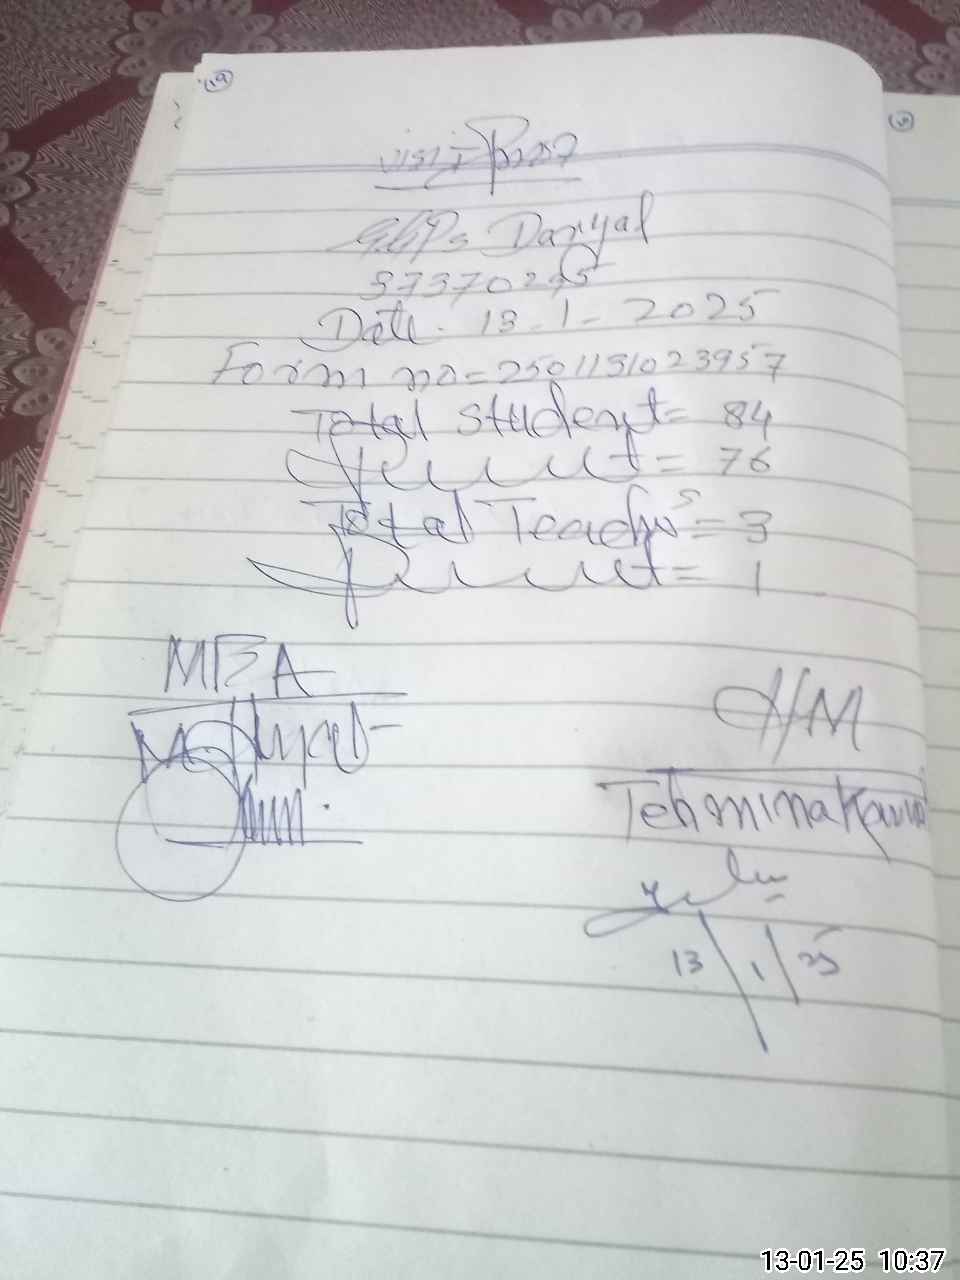 visit
GGPS Danyal
37370245
Date. 13-1-2025
Form no=2501131023957
Total Student= 84
Present= 76
Total Teachers= 3
Present= 1
MEA
H/M
Tehmina Kausar
13/1/25
13-01-25 10:37